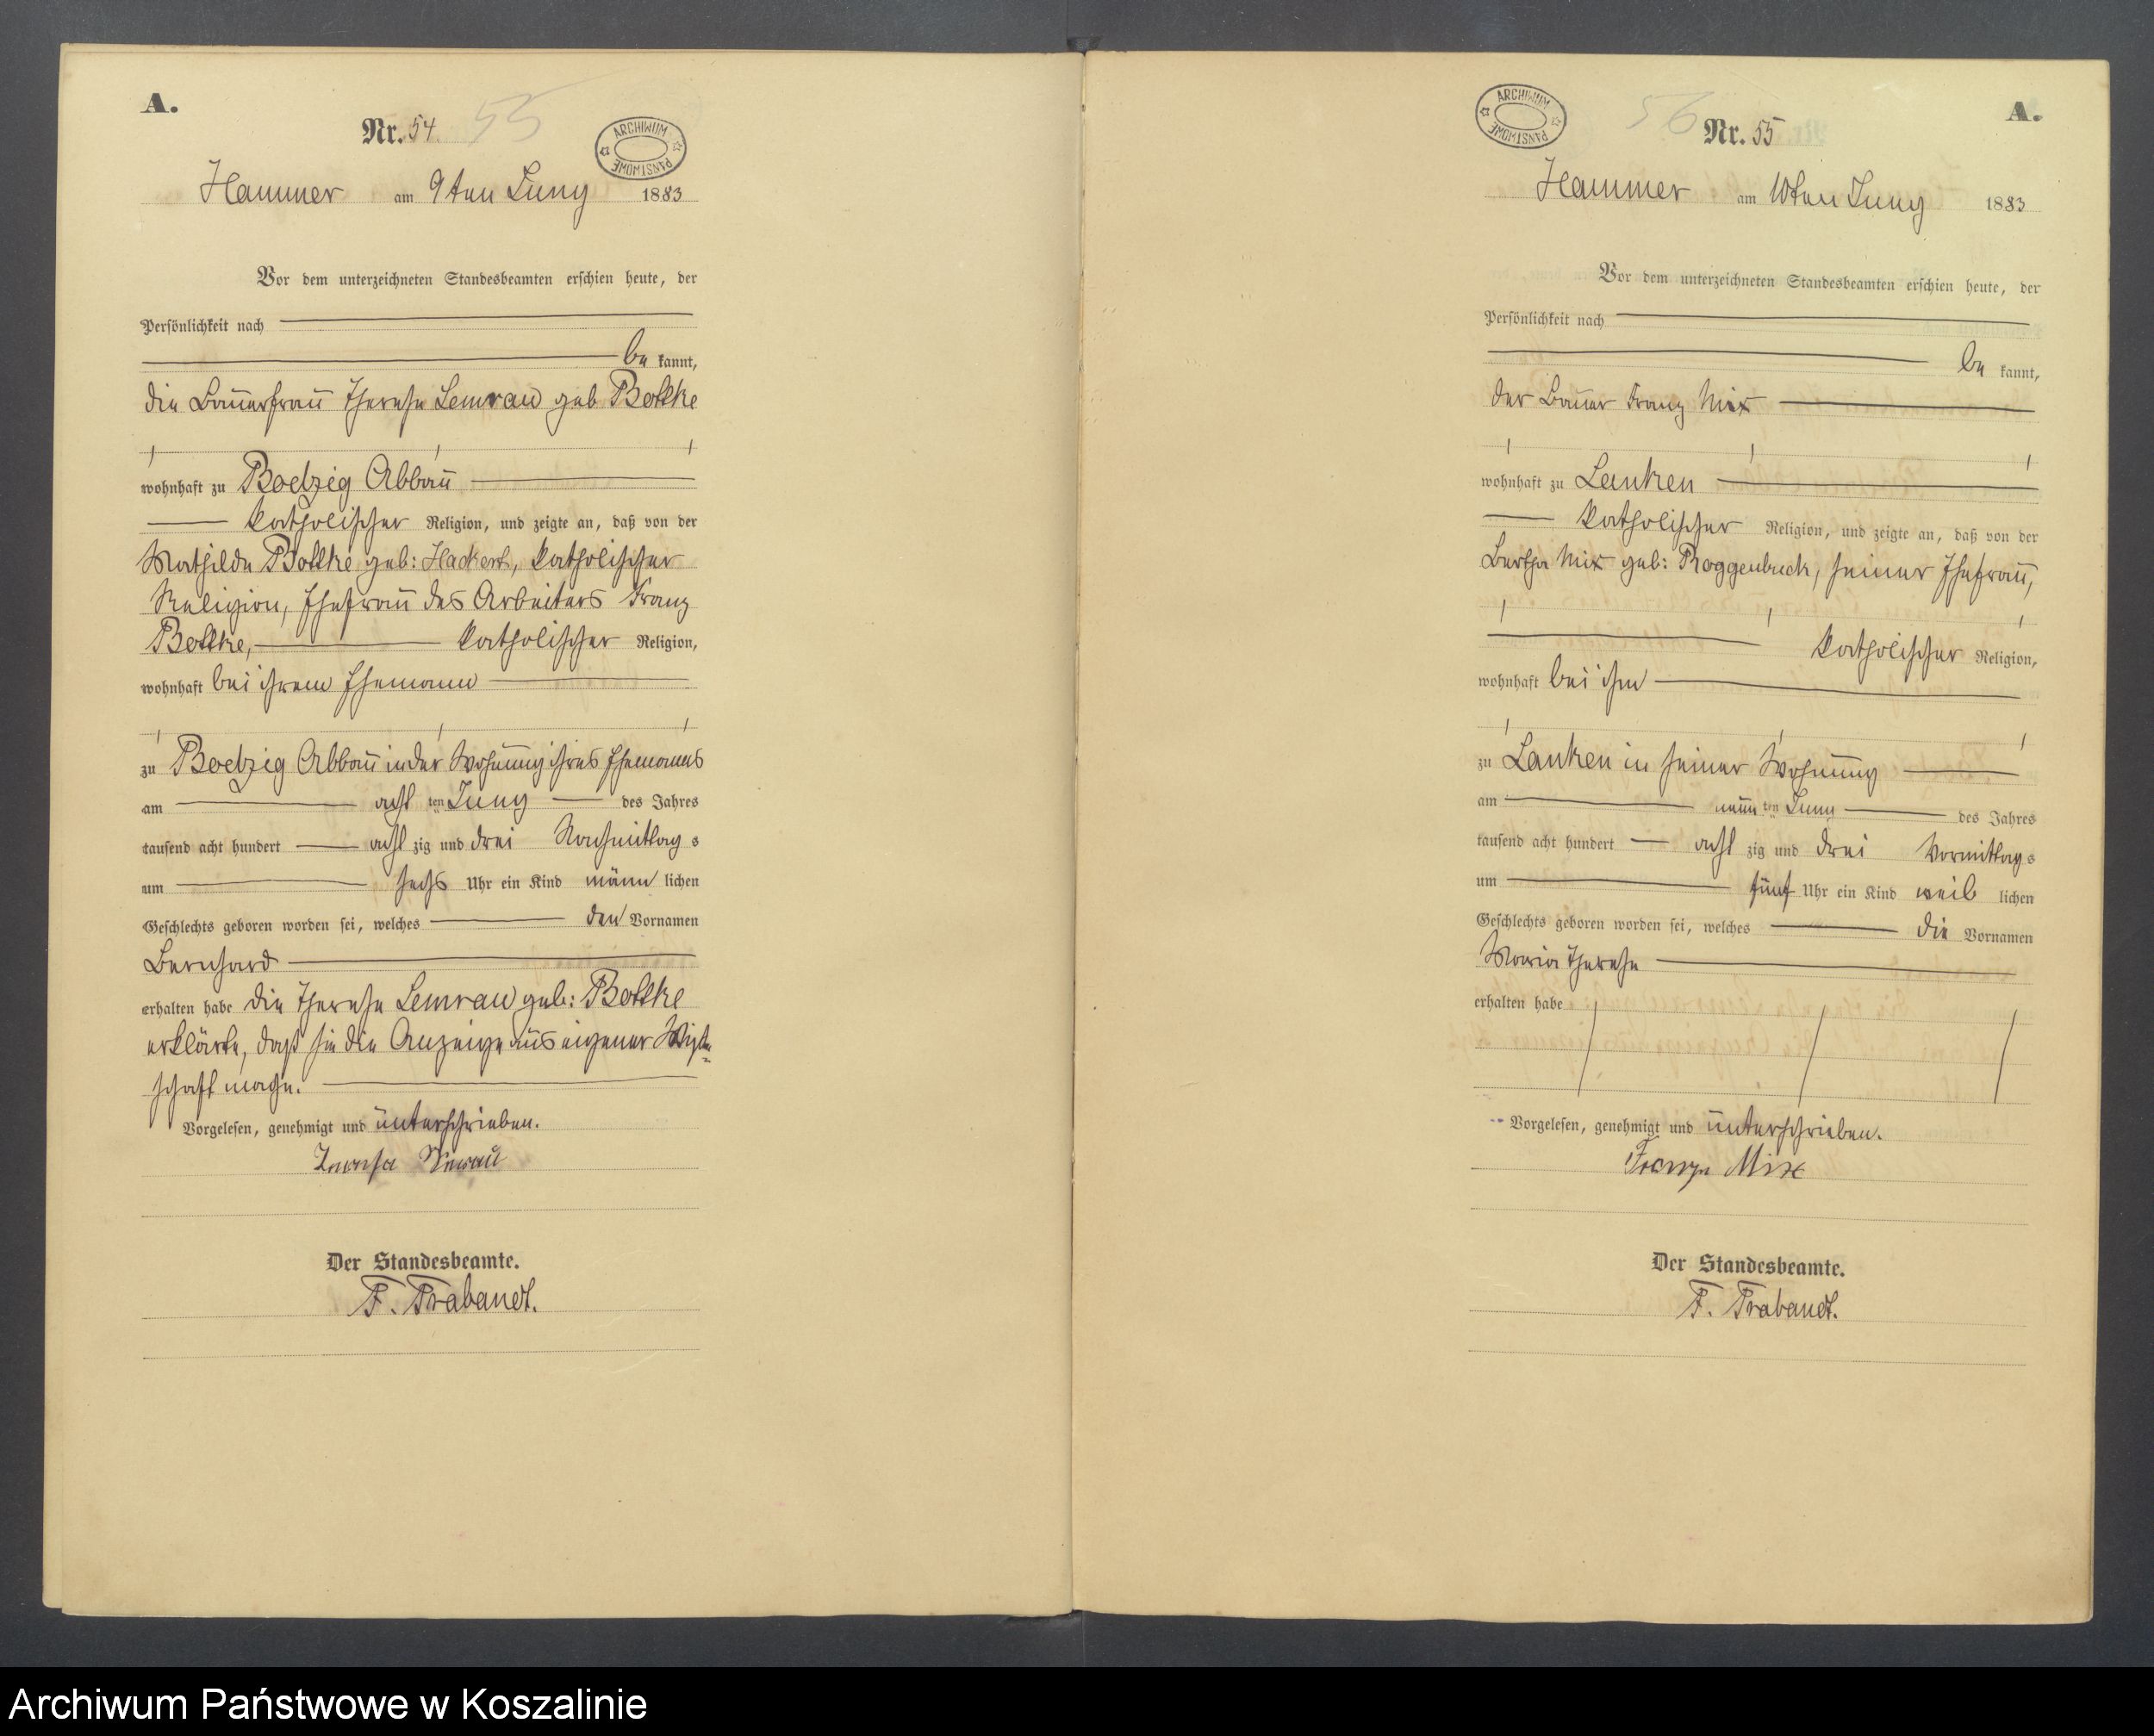 A.
Nr. 54
55
ARCHIWUM PAŃSTWOWE
Hammer am 9ten Juny 1883
Vor dem unterzeichneten Standesbeamten erschien heute, der
Persönlichkeit nach
be kannt,
die Bauerfrau Therese Lemrau geb Bottke
wohnhaft zu Boetzig Abbau
katholischer Religion, und zeigte an, daß von der
Mathilde Bottke geb: Hackert, katholischer
Religion, Ehefrau des Arbeiters Franz
Bottke, katholischer Religion,
wohnhaft bei ihrem Ehemann
zu Boetzig Abbau in der Wohnung ihres Ehemanns
am acht ten Juny des Jahres
tausend acht hundert acht zig und drei Nachmittag s
um sechs Uhr ein Kind männ lichen
Geschlechts geboren worden sei, welches den Vornamen
Bernhard
erhalten habe die Therese Lemrau geb: Bottke
erklärte, daß sie die Anzeige aus eigener
schaft mache.
Vorgelesen, genehmigt und unterschrieben.
Der Standesbeamte.
F. Trabandt.
ARCHIWUM PAŃSTWOWE
56
Nr. 55
A.
Hammer am 10ten Juny 1883
Vor dem unterzeichneten Standesbeamten erschien heute, der
Persönlichkeit nach
be kannt,
der Bauer Franz Mix
wohnhaft zu Lanken
katholischer Religion, und zeigte an, daß von der
Bertha Mix geb: Roggenbuck, seiner Ehefrau,
katholischer Religion,
wohnhaft bei ihm
zu Lanken in seiner Wohnung
am neun ten Juny des Jahres
tausend acht hundert acht zig und drei Vormittag s
um fünf Uhr ein Kind weib lichen
Geschlechts geboren worden sei, welches die Vornamen
Maria Therese
erhalten habe
Vorgelesen, genehmigt und unterschrieben.
Franz Mix
Der Standesbeamte.
F. Trabandt.
Archiwum Państwowe w Koszalinie